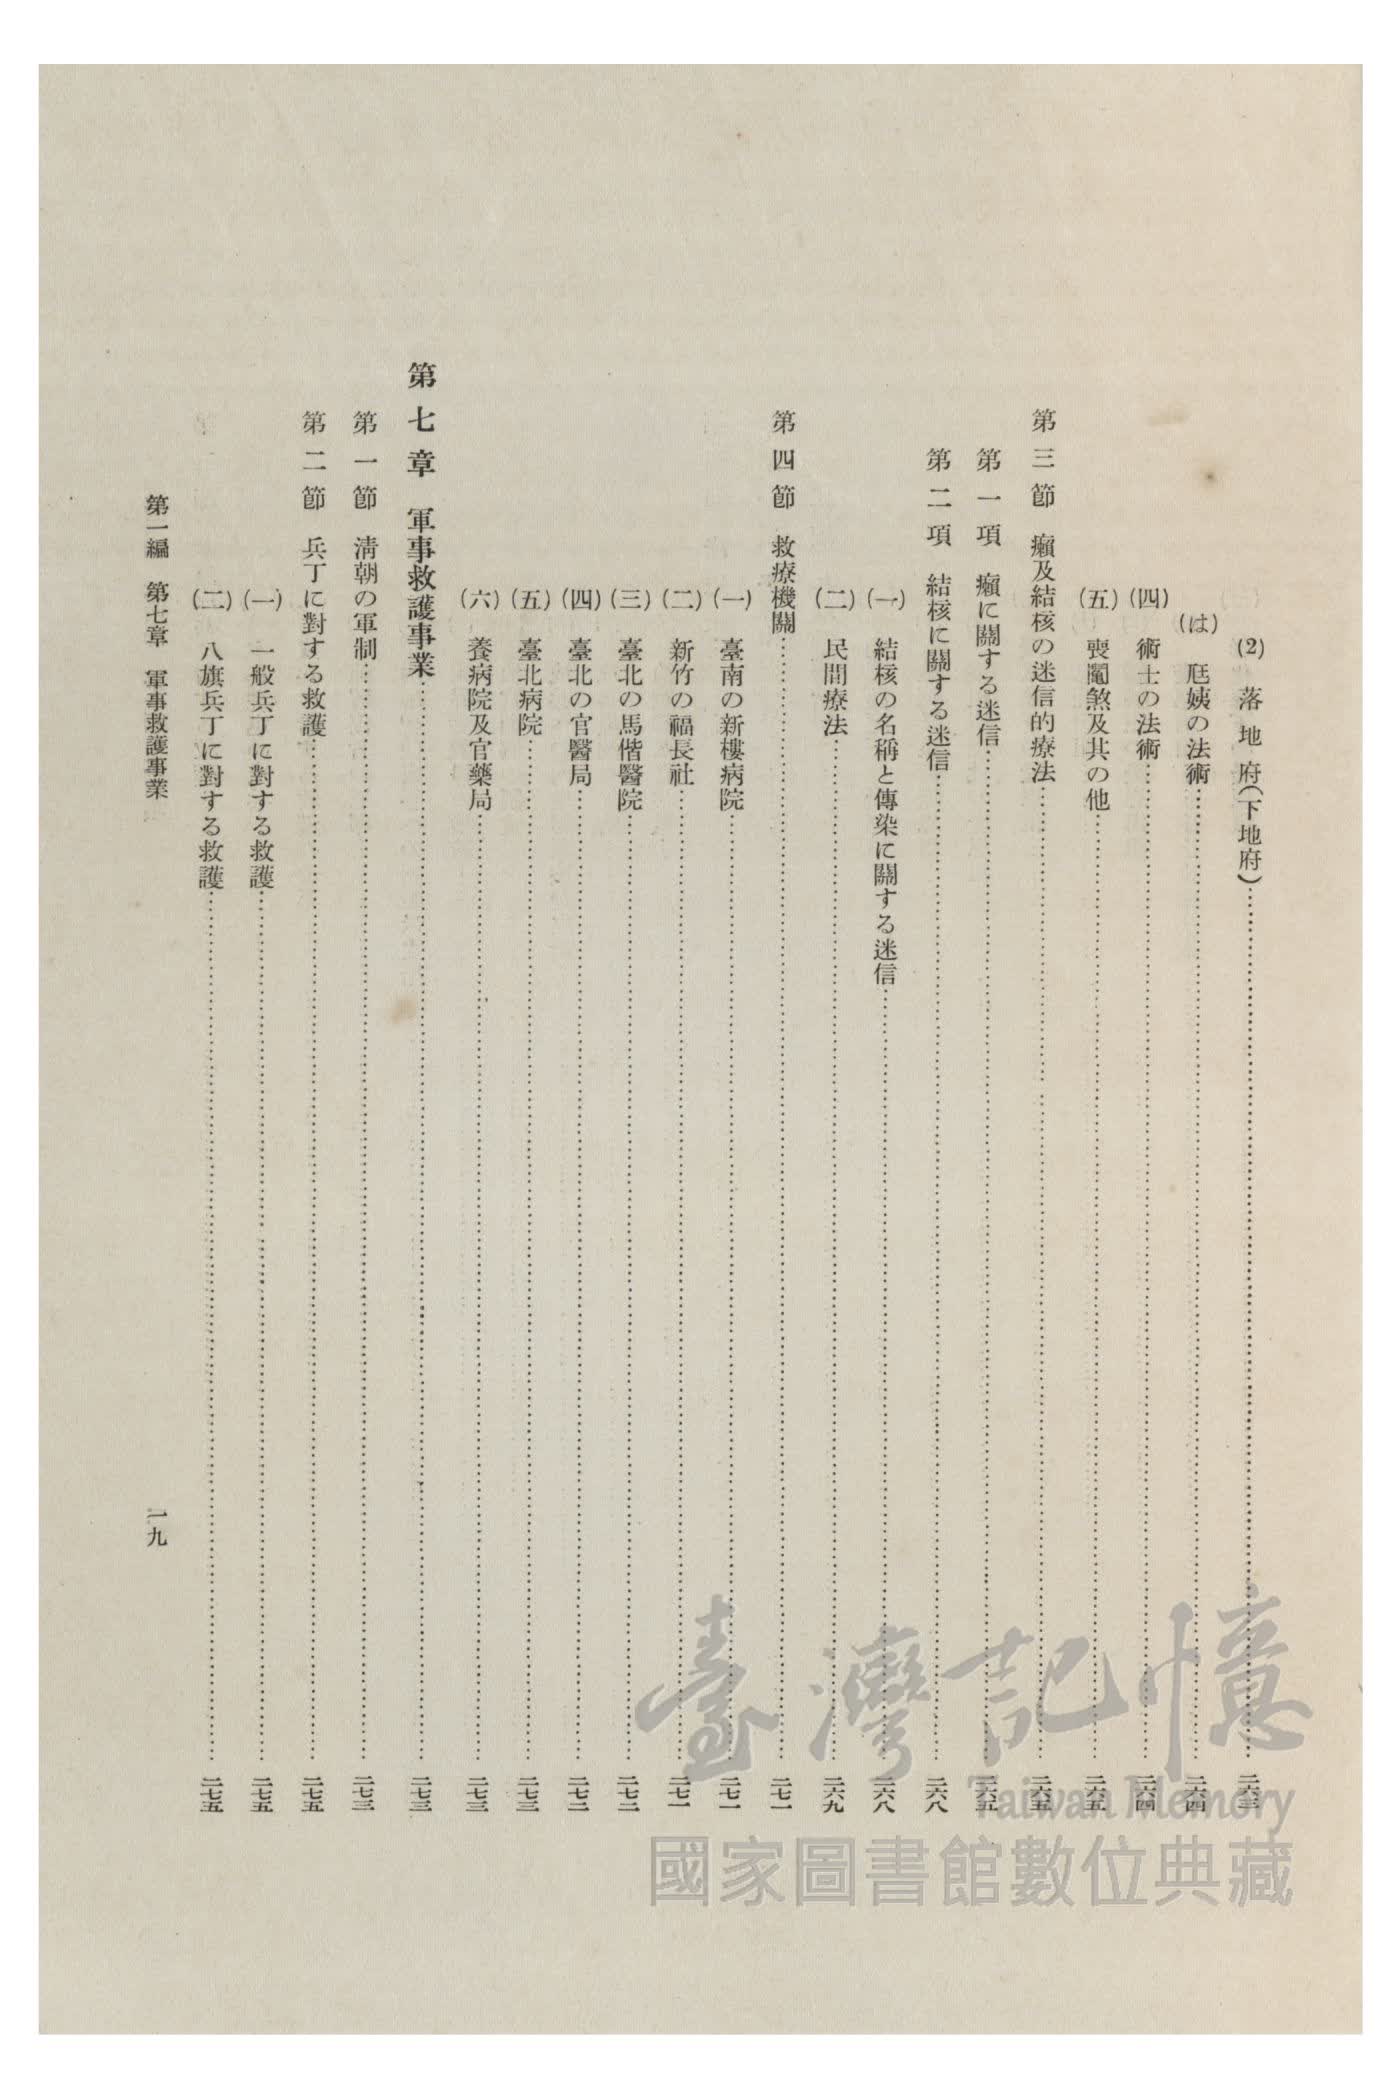 (2) 落地府(下地府)……二六三
(は) 尪姨の法術……二六四
(四) 術士の法術……二六四
(五) 喪闈煞及其の他……二六五
第三節 癩及結核の迷信的療法……二六五
第一項 癩に關する迷信……二六五
第二項 結核に關する迷信……二六八
(一) 結核の名稱と傳染に關する迷信……二六八
(二) 民間療法……二六九
第四節 救療機關……二七一
(一) 臺南の新樓病院……二七一
(二) 新竹の福長社……二七一
(三) 臺北の馬偕醫院……二七二
(四) 臺北の官醫局……二七二
(五) 臺北病院……二七三
(六) 養病院及官藥局……二七三
第七章 軍事救護事業……二七三
第一節 淸朝の軍制……二七三
第二節 兵丁に對する救護……二七五
(一) 一般兵丁に對する救護……二七五
(二) 八旗兵丁に對する救護……二七五
第一編 第七章 軍事救護事業
一九
臺灣記憶
Taiwan Memory
國家圖書館數位典藏